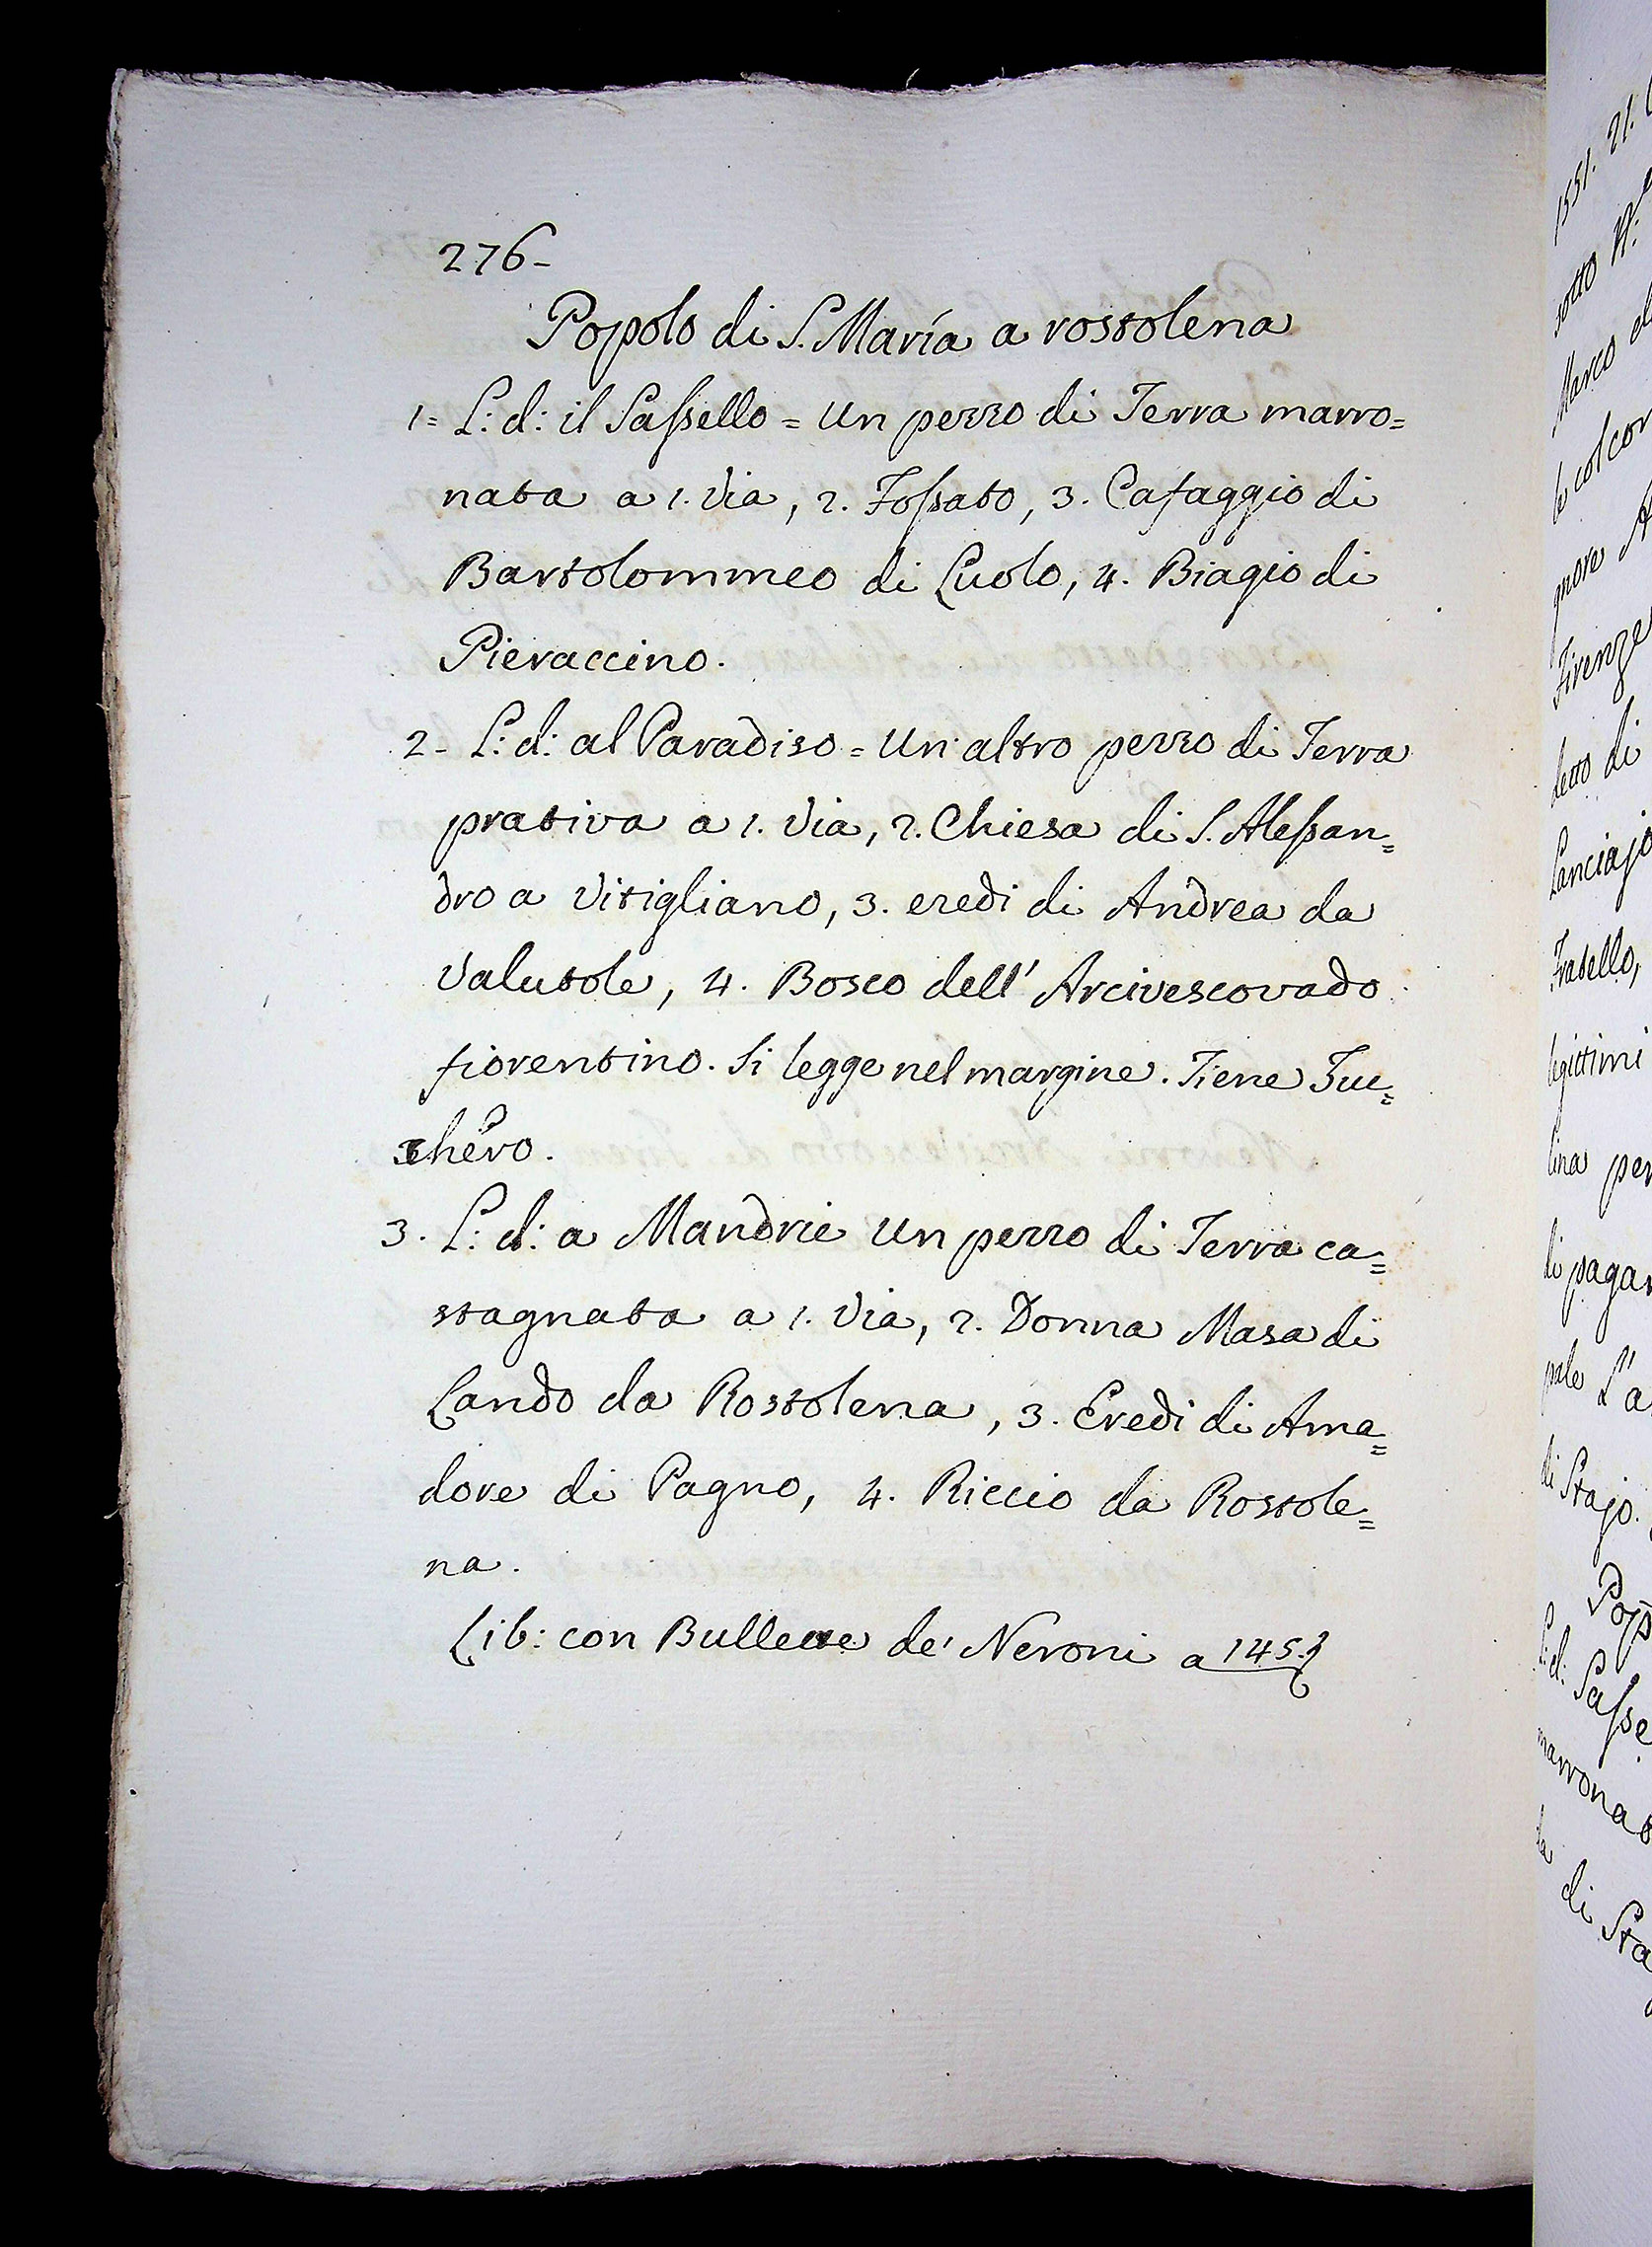 276-
Popolo di S. María a rostolena
1= L: d: il Sassello = Un pezzo di Terra marro=
nata a 1. Via, 2. Fossato, 3. Cafaggio di
Bartolommeo di Cuolo, 4. Biagio di
Pieraccino.
2- L: d: al Paradiso = Un altro pezzo di Terra
prativa a 1. Via, 2. Chiesa di S. Alessan=
dro a Vitigliano, 3. eredi di Andrea da
Valutole, 4. Bosco dell' Arcivescovado
fiorentino. Si legge nel margine. Tiene Fuc=
chéro.
3. L: d: a Mandrie Un pezzo di Terra ca=
stagnata a 1. Via, 2. Donna Masa di
Lando da Rostolena, 3. Eredi di Ama=
dore di Pagno, 4. Riccio da Rostole=
na.
Lib: con Bullette de' Neroni a
1551. 21.
sotto N:
Marco
le col
gnore
Firenze
detto di
Lanciajo
Fratello,
legittimi
lina per
di pagar
pale L'a
di Stajo.
Pop
L: d: Sasse
marronat
di Sta